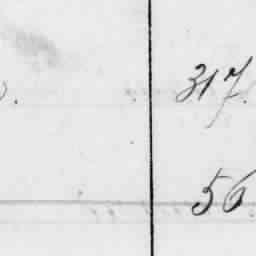 317.
56